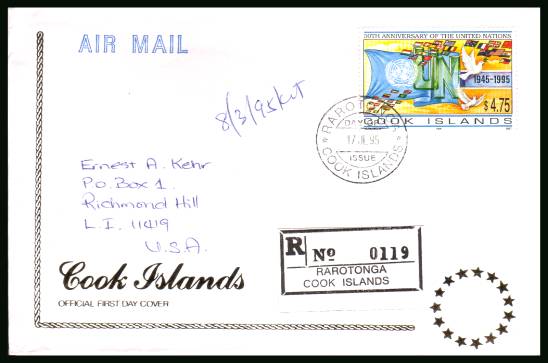 AIR MAIL
50TH ANNIVERSARY OF THE UNITED NATIONS
UN
1945-1995
$4.75
COOK ISLANDS
RAROTONGA
DAY OF
17 JL 95
ISSUE
COOK ISLANDS
8/3/95
Ernest A. Kehr
P.O. Box 1.
Richmond Hill
L.I. 11419
U.S.A.
R No 0119
RAROTONGA
COOK ISLANDS
Cook Islands
OFFICIAL FIRST DAY COVER